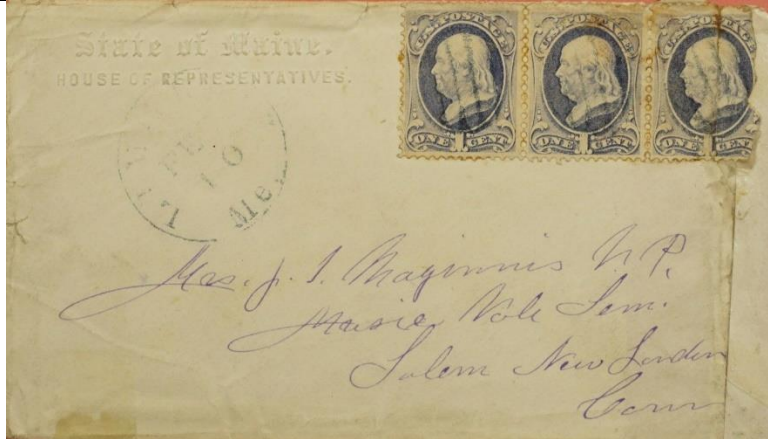 State of Maine.
HOUSE OF REPRESENTATIVES.
U.S. POSTAGE
ONE 1 CENT
U.S. POSTAGE
ONE 1 CENT
U.S. POSTAGE
ONE 1 CENT
10
Me.
Mrs. J. I. Maginnis N. P.
Music Vale Sem.
Salem New London
Conn